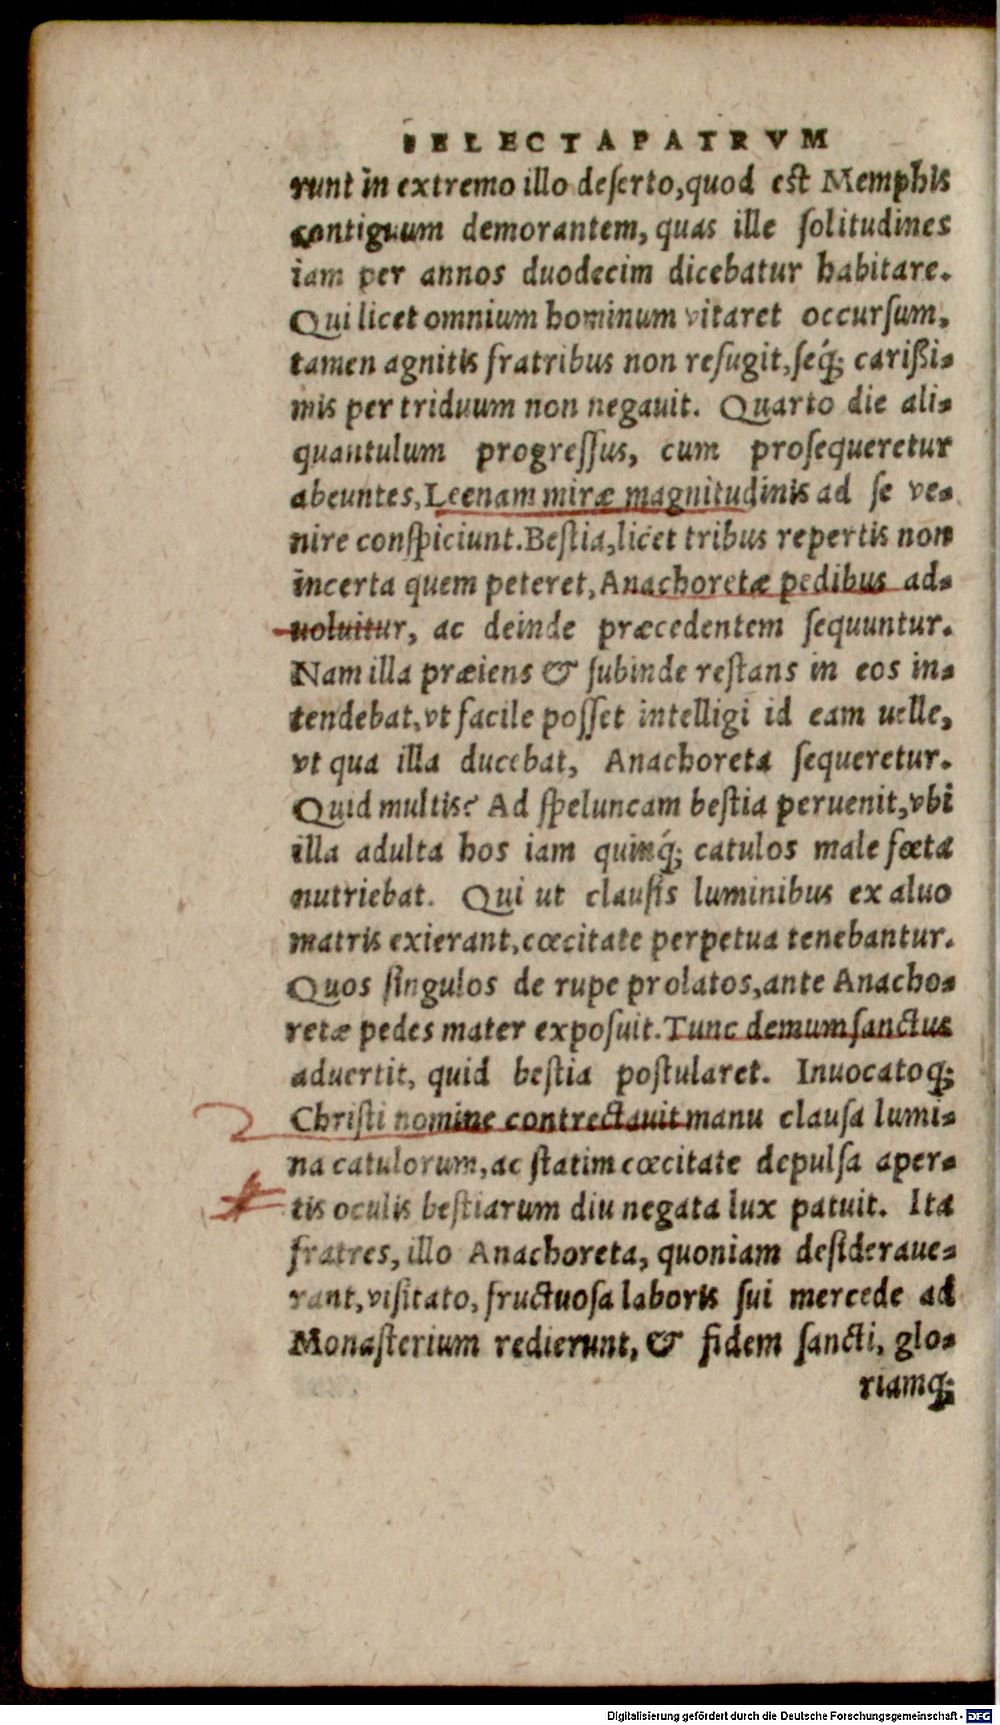 SELECTA PATRVM
runt in extremo illo deſerto, quod est Memphis
contiguum demorantem, quas ille ſolitudines
iam per annos duodecim dicebatur habitare.
Qui licet omnium hominum vitaret occurſum,
tamen agnitis fratribus non refugit, ſeq́; carißi-
mis per triduum non negauit. Quarto die ali-
quantulum progreſſus, cum proſequeretur
abeuntes, Leenam miræ magnitudinis ad ſe ve-
nire conſpiciunt. Beſtia, licet tribus repertis non
incerta quem peteret, Anachoretæ pedibus ad-
uoluitur, ac deinde præcedentem ſequuntur.
Nam illa præiens & ſubinde reſtans in eos in-
tendebat, vt facile poſſet intelligi id eam uelle,
vt qua illa ducebat, Anachoreta ſequeretur.
Quid multis? Ad ſpeluncam beſtia peruenit, vbi
illa adulta hos iam quinq́; catulos male fœta
nutriebat. Qui ut clauſis luminibus ex aluo
matris exierant, cœcitate perpetua tenebantur.
Quos ſingulos de rupe prolatos, ante Anacho-
retæ pedes mater expoſuit. Tunc demum ſanctus
aduertit, quid beſtia poſtularet. Inuocatoq́;
Chriſti nomine contrectauit manu clauſa lumi-
na catulorum, ac ſtatim cœcitate depulſa aper-
tis oculis beſtiarum diu negata lux patuit. Ita
fratres, illo Anachoreta, quoniam deſideraue-
rant, viſitato, fructuoſa laboris ſui mercede ad
Monaſterium redierunt, & fidem ſancti, glo-
riamq́;
Digitalisierung gefördert durch die Deutsche Forschungsgemeinschaft - DFG